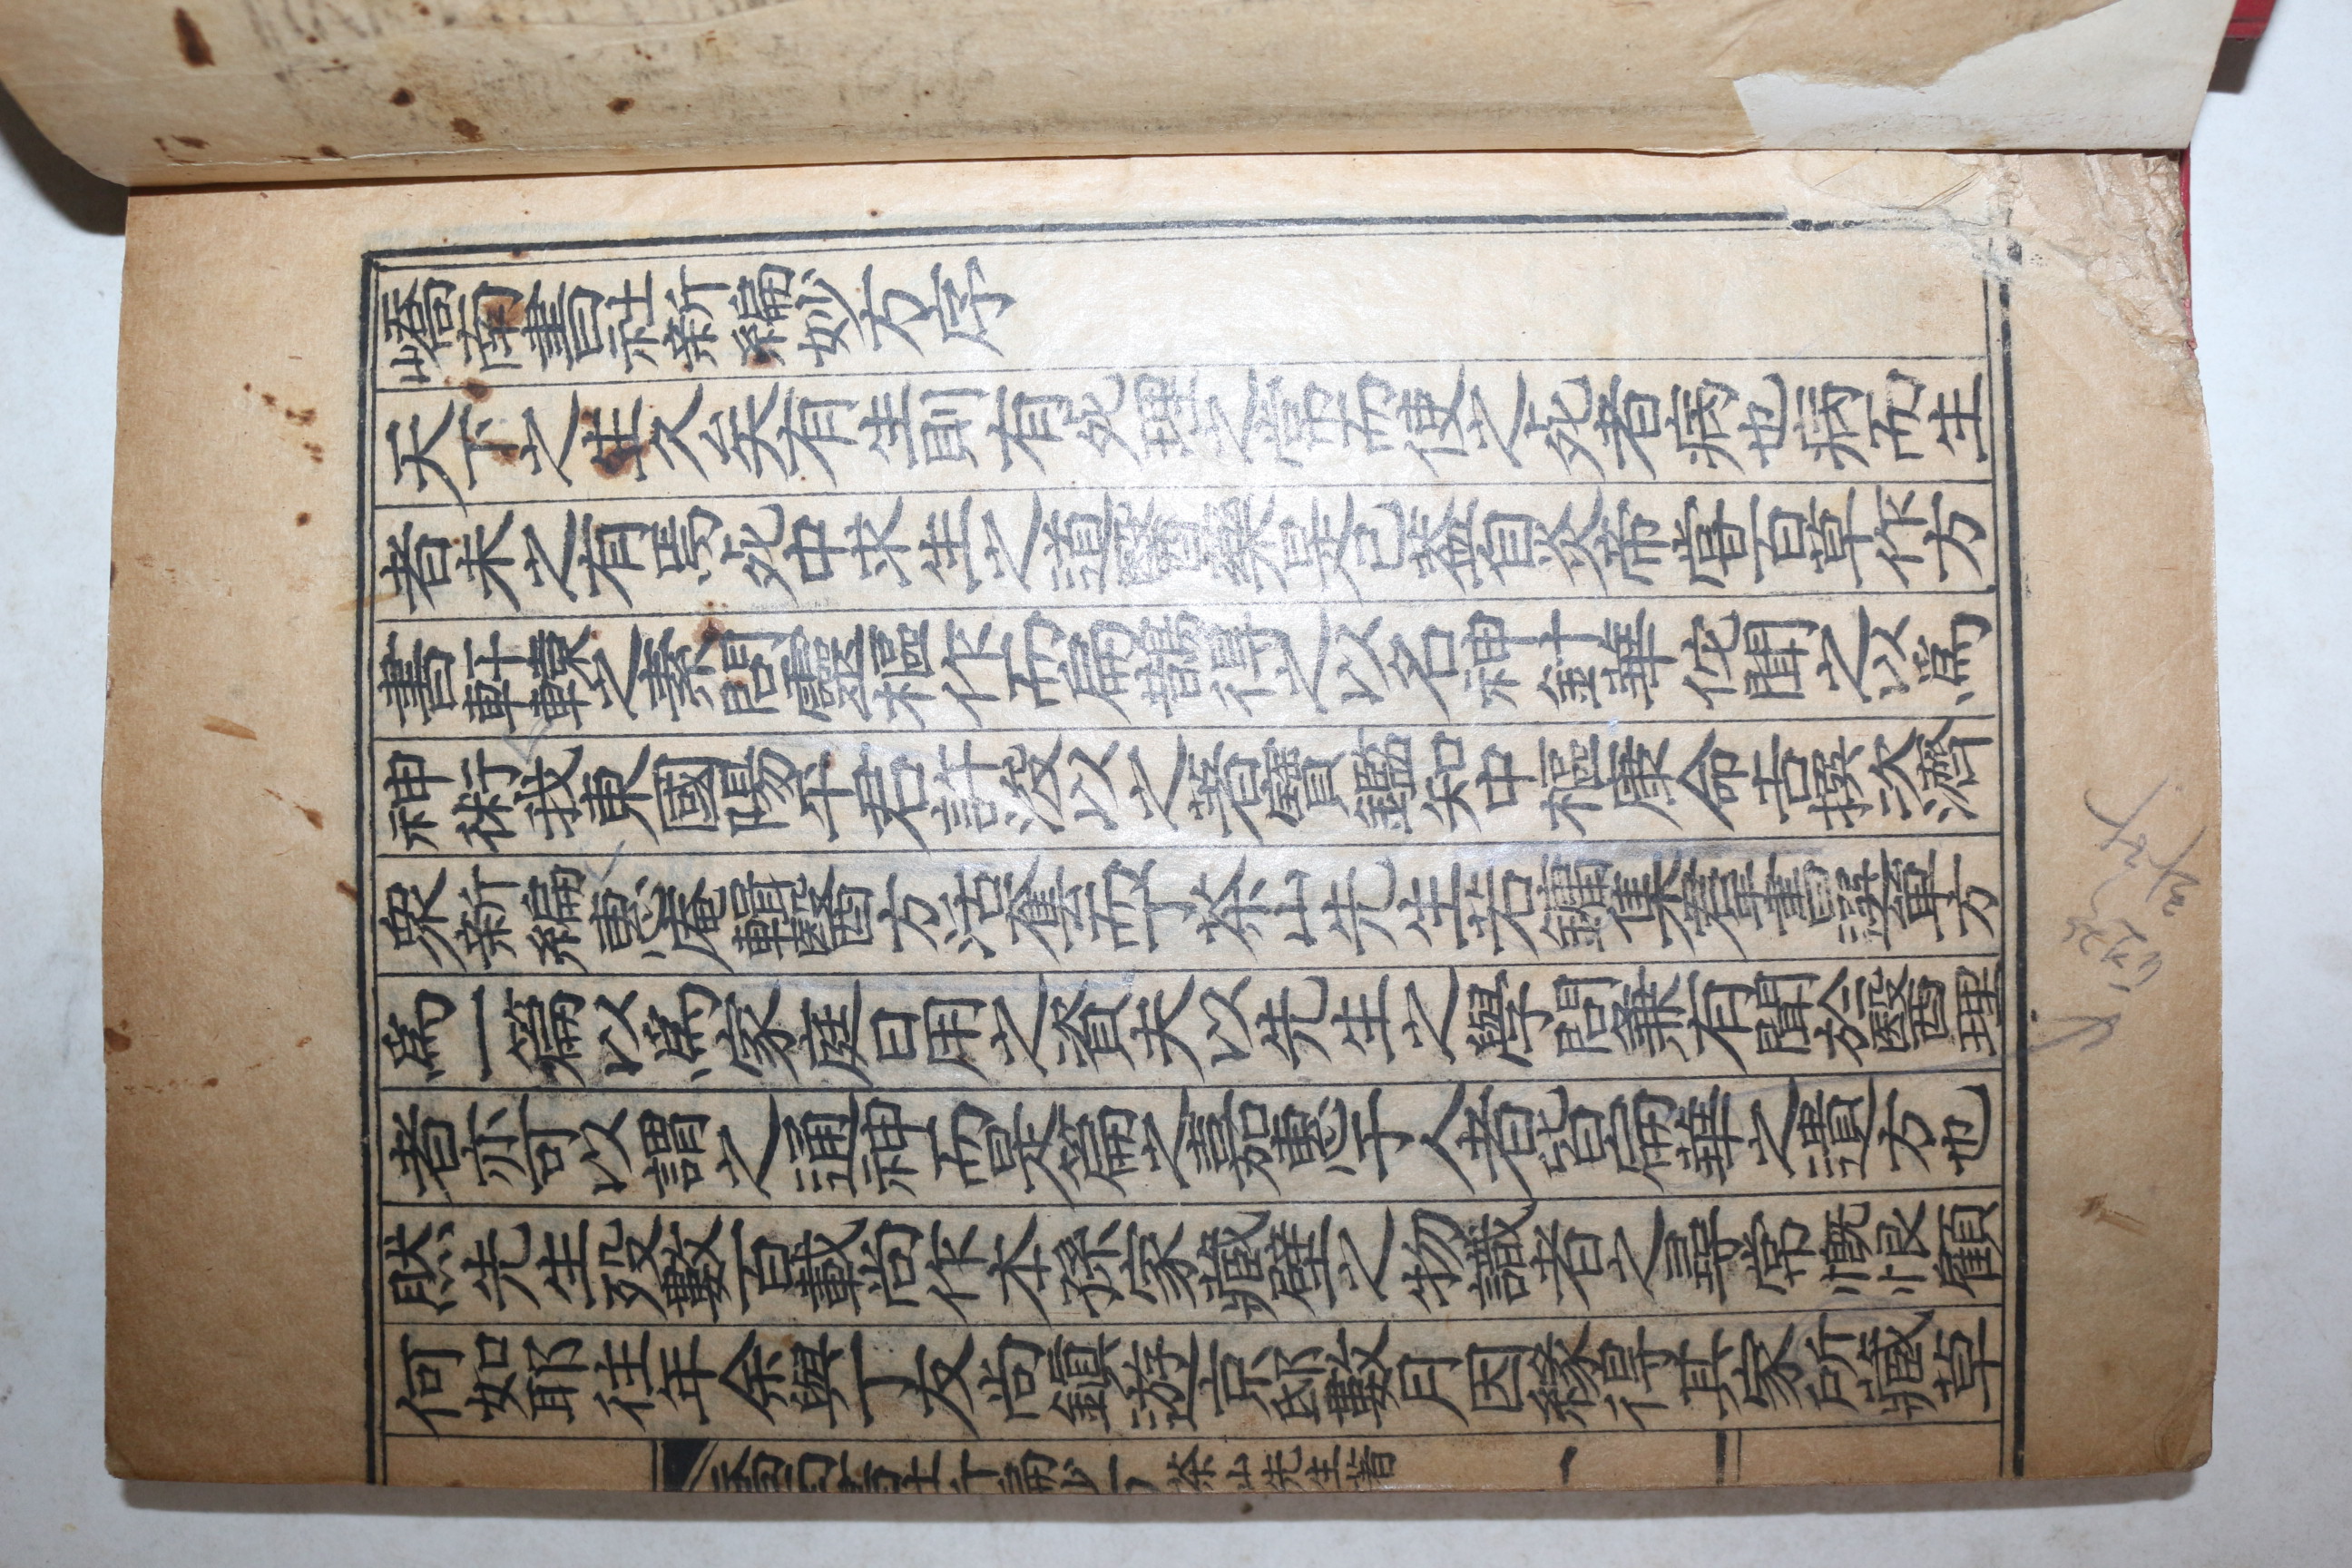 嶠南書社新編妙方序
天下之生久矣有生則有死理之常而使之死者病也病而生
者未之有焉死中求生之道醫藥是已盖自炎帝嘗百草作方
書軒轅之素問靈樞作而扁鵲得之以名神針華佗聞之以爲
神術我東國陽平君許浚以之著寶鑑知中樞康命吉撰次濟
衆新編惠庵輯醫方活套而丁茶山先生若鏞集羣書單方
爲一篇以爲家庭日用之資夫以先生之學問兼有聞於醫理
者亦可以謂之通神而是篇之嘉惠于人者皆扁華之遺方也
然先生歿數百載尚作本孫家藏壁之物識者之尋常慨恨顧
何如耶往年余與丁友尚鎭遊京邸數月因緣得其家所藏草
茶山先生著 一